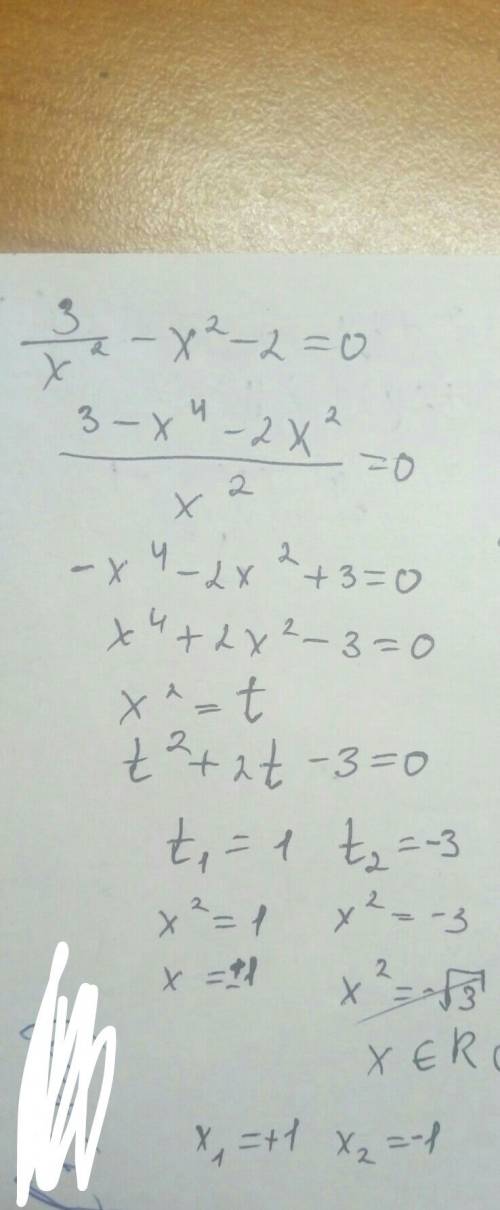 3/x² - x² - 2 = 0
(3 - x⁴ - 2x²)/x² = 0
-x⁴ - 2x² + 3 = 0
x⁴ + 2x² - 3 = 0
x² = t
t² + 2t - 3 = 0
t₁ = 1 t₂ = -3
x² = 1 x² = -3
x = ±1 x² = -√3
x ∈ R
x₁ = +1 x₂ = -1